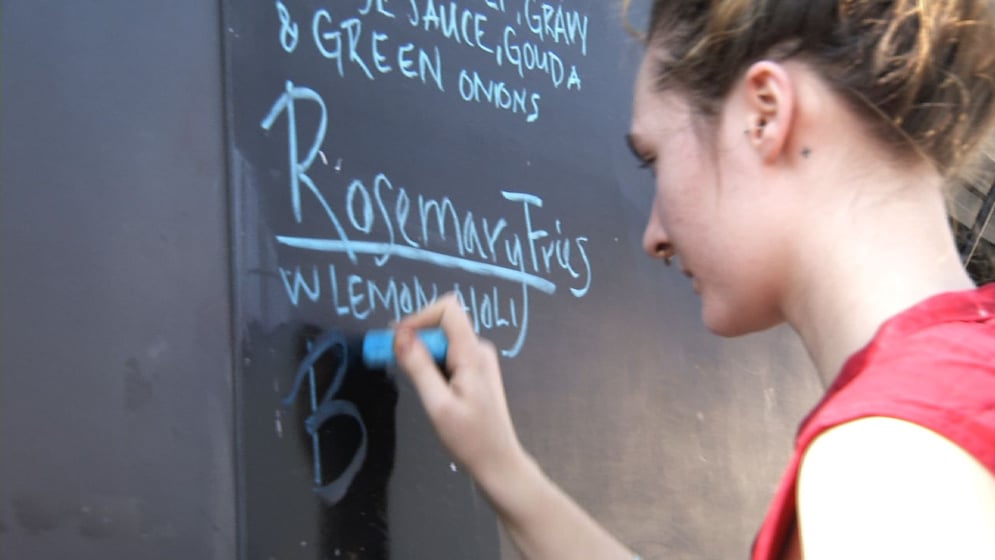 SAUCE, GRAVY
& GREEN ONIONS, GOUDA
Rosemary Fries
W LEMON AIOLI
B